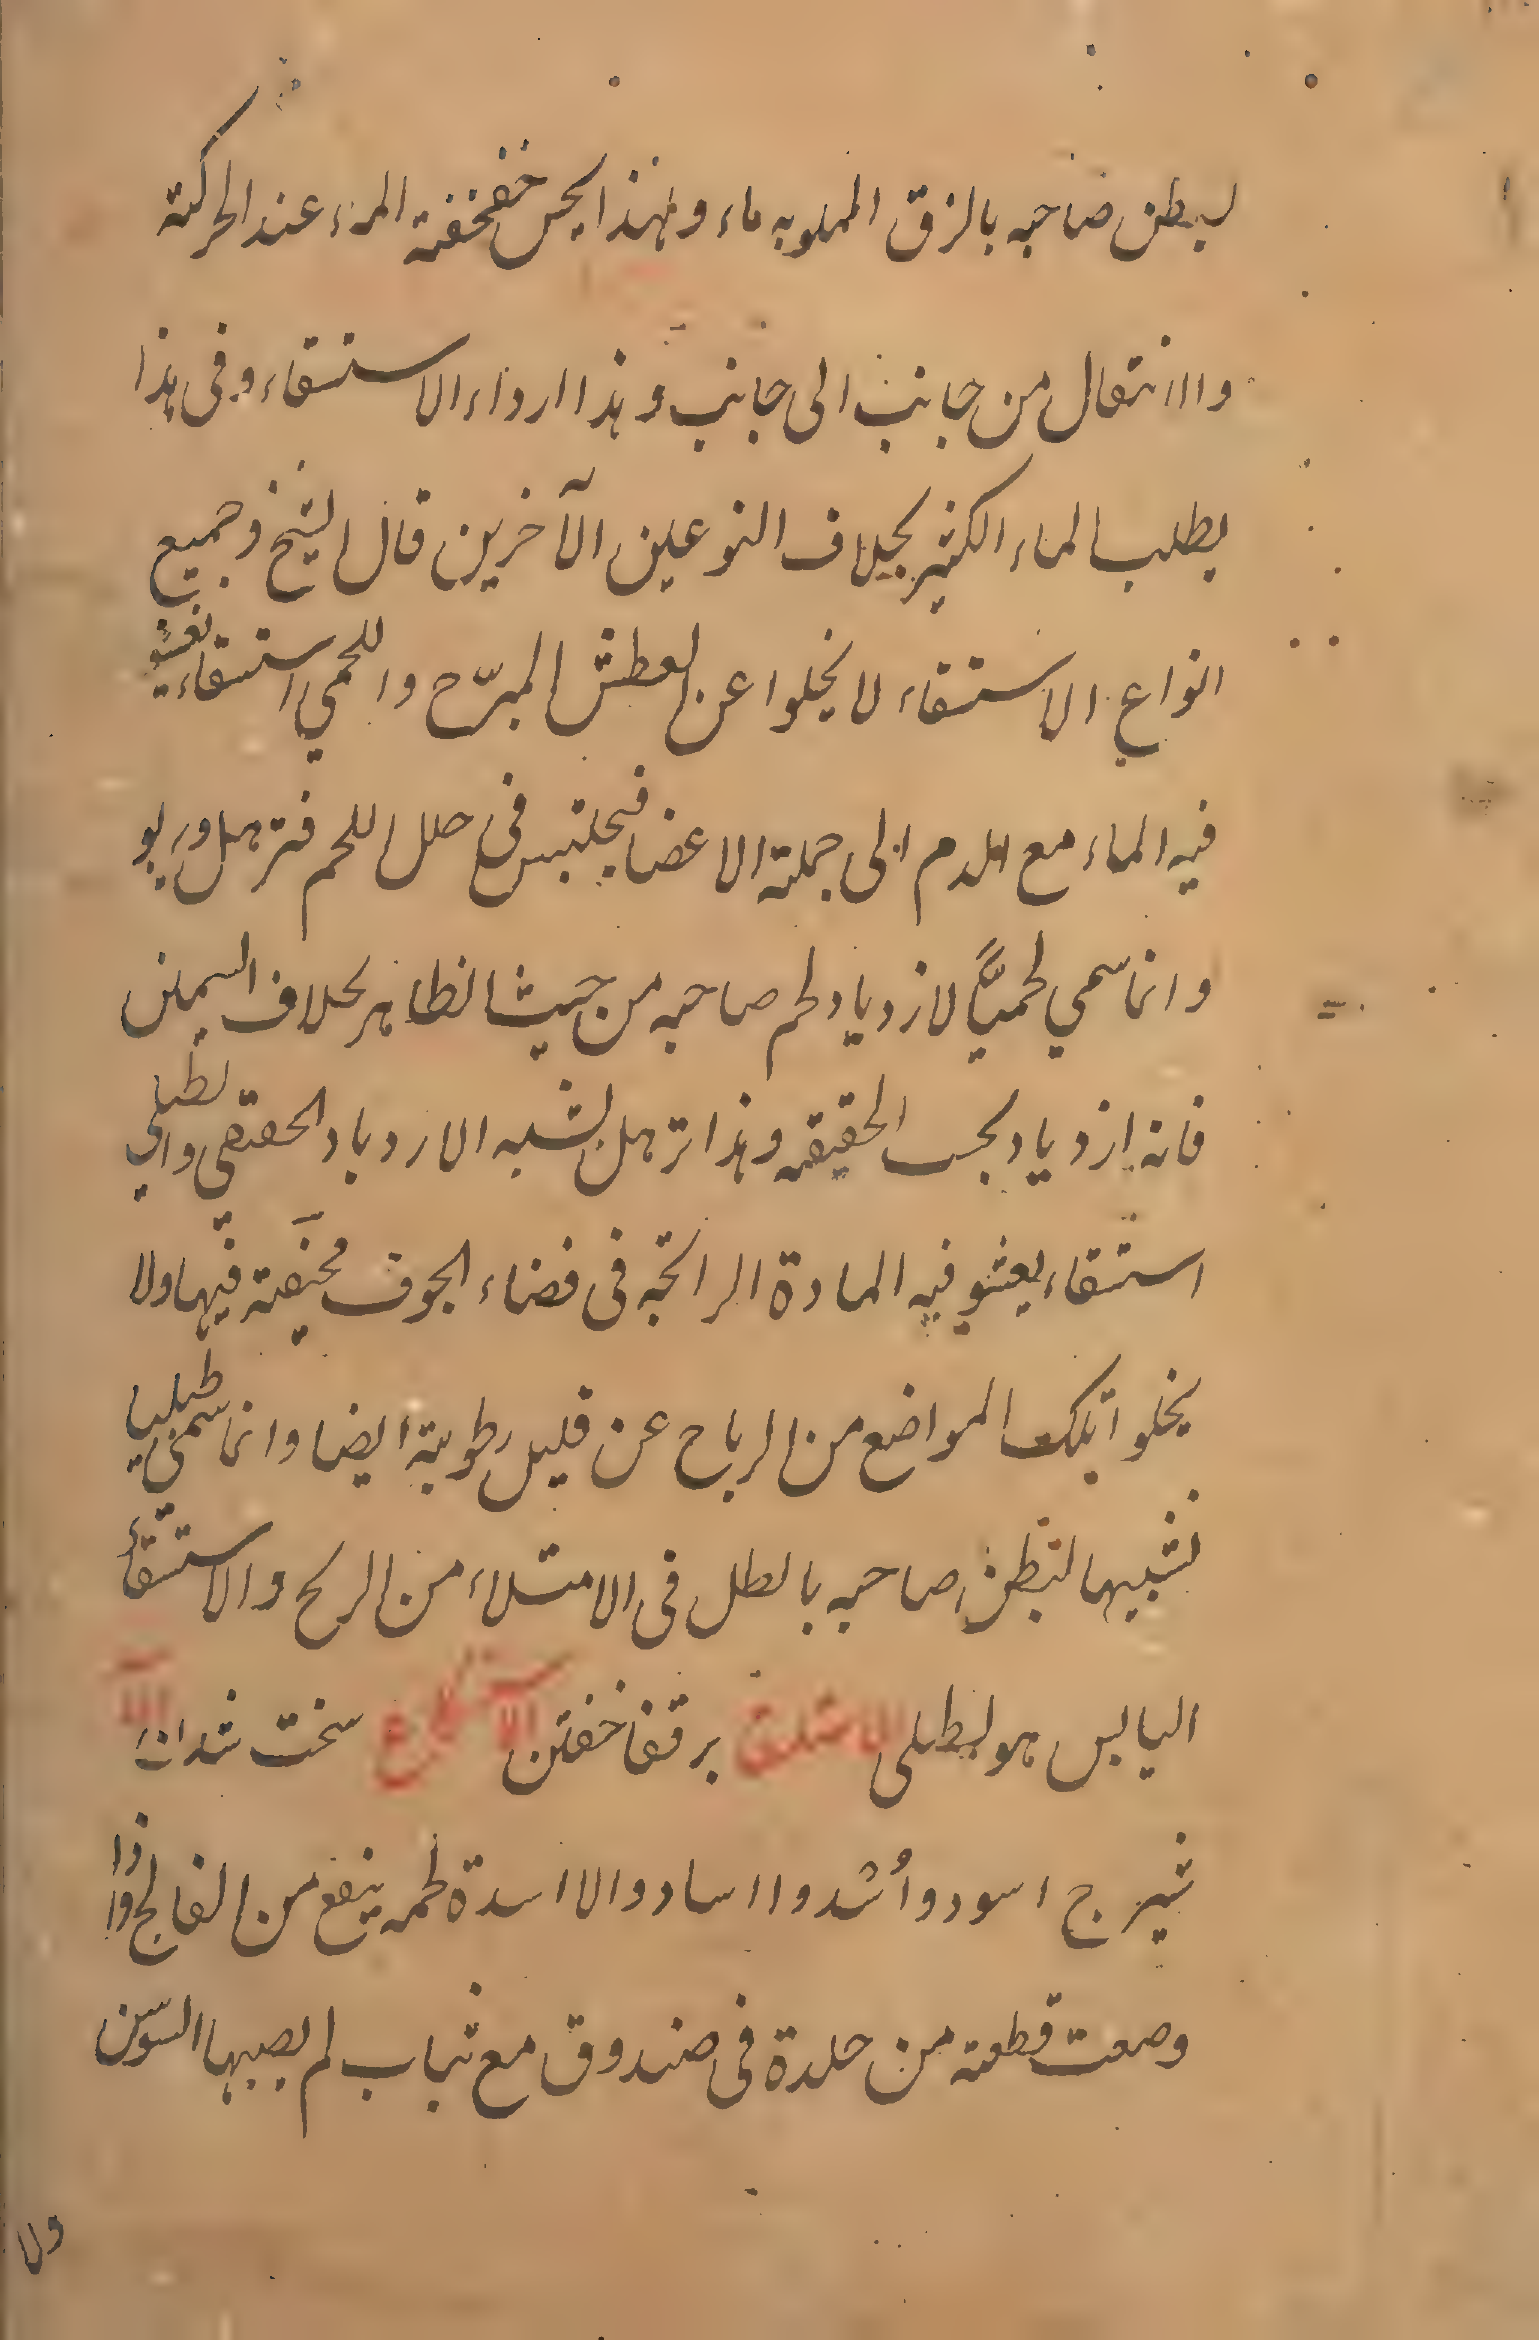 لبطن صاحبه بالزق المملو به ماء ولهذا يحس خفخفة الماء عند الحركة
والانتقال من جانب الى جانب وهذا ارداء الاستسقاء وفى هذا
يطلب الماء الكثير بخلاف النوعين الآخرين قال الشيخ وجميع
انواع الاستسقاء لا يخلوا عن العطش المبرّح واللحمي استسقاء يغشو
فيه الماء مع الدم الى جملة الاعضا فيحتبس فى خلل اللحم فترهل ويربو
وانما سمي لحميًّا لازدياد لحم صاحبه من حيث الظاهر بخلاف السمين
فانه ازدياد بحسب الحقيقه وهذا ترهل يشبه الازدياد الحقيقى والطبلي
استسقاء يغشو فيه المادة الرائحيه فى فضاء الجوف محتقنة فيها ولا
يخلوا تلك المواضع من الرياح عن قليل رطوبة ايضا وانما سمى طبليا
تشبيها لبطن صاحبه بالطبل فى الامتلاء من الريح والاستسقاء
اليابس هو الطبلى الاستلقا بر قفا خفتن الا سخت شدن الا
شيرج اسود وأسُد وااساد والااسدة لحمه ينفع من الفالج واذا
وضعت قطعة من جلدة فى صندوق مع ثياب لم يصبها السوس
ولا